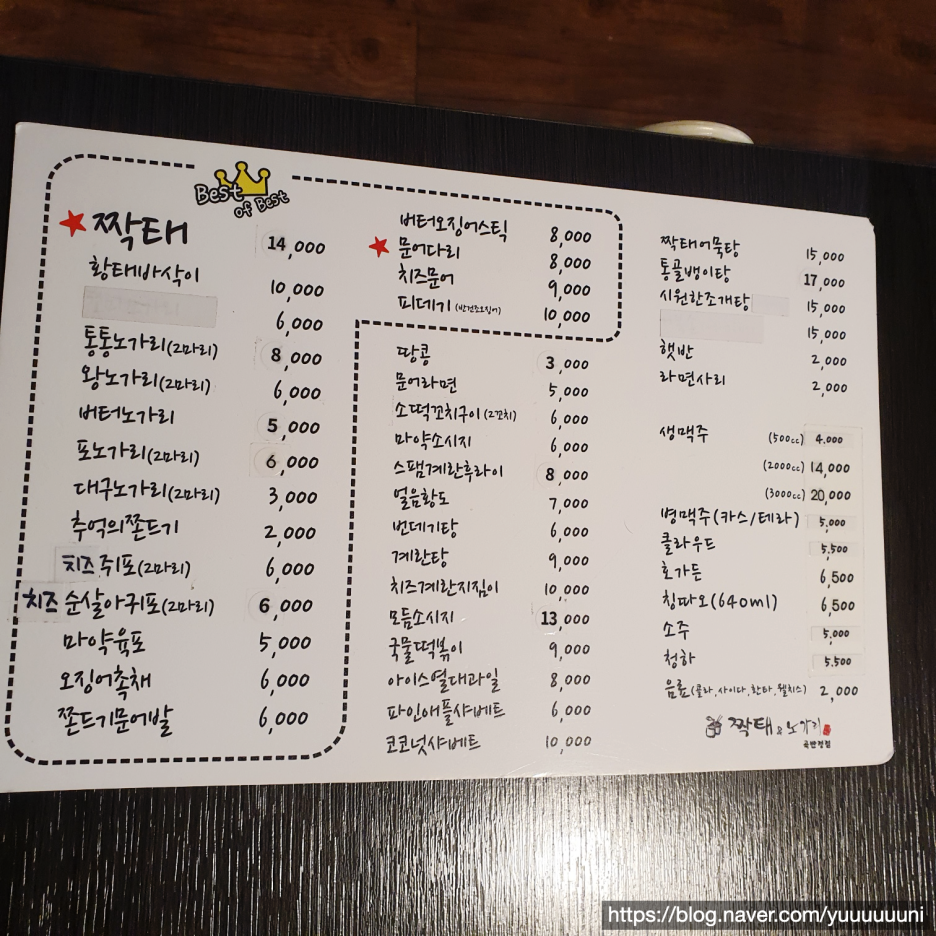 Best of Best
짝태 14,000
황태바삭이 10,000
6,000
통통노가리(2마리) 8,000
왕노가리(2마리) 6,000
버터노가리 5,000
포노가리(2마리) 6,000
대구노가리(2마리) 3,000
추억의쫀드기 2,000
치즈쥐포(2마리) 6,000
치즈순살아귀포(2마리) 6,000
마약육포 5,000
오징어촉채 6,000
쫀드기문어발 6,000
버터오징어스틱 8,000
문어다리 8,000
치즈문어 9,000
피데기(반건조오징어) 10,000
땅콩 3,000
문어라면 5,000
소떡꼬치구이(2꼬치) 6,000
마약소시지 6,000
스팸계란후라이 8,000
얼음황도 7,000
번데기탕 6,000
계란탕 9,000
치즈계란지짐이 10,000
모듬소시지 13,000
국물떡볶이 9,000
아이스열대과일 8,000
파인애플샤베트 6,000
코코넛샤베트 10,000
짝태어묵탕 15,000
통골뱅이탕 17,000
시원한조개탕 15,000
15,000
햇반 2,000
라면사리 2,000
생맥주 (500cc) 4.000
(2000cc) 14,000
(3000cc) 20,000
병맥주(카스/테라) 5,000
클라우드 5,500
호가든 6,500
칭따오(640ml) 6,500
소주 5,000
청하 5.500
음료(콜라,사이다,환타,웰치스) 2,000
짝태&노가리
https://blog.naver.com/yuuuuuuni